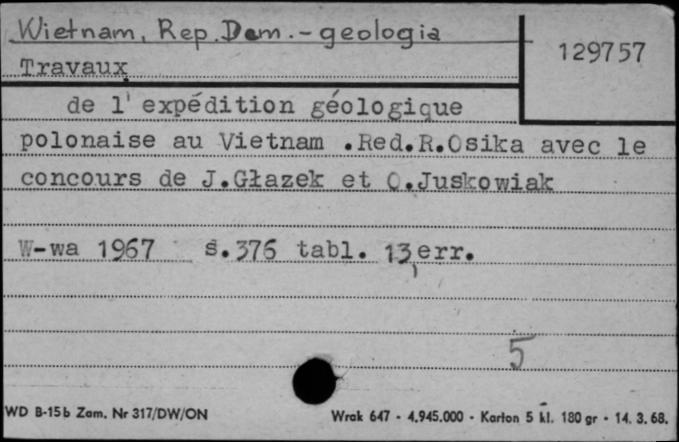 Wietnam, Rep. Dem. - geologia
129757
Travaux
de l'expédition géologique
polonaise au Vietnam .Red.R.Osika avec le
concours de J.Głazek et O.Juskowiak
W-wa 1967 s.376 tabl. 13,err.
5
WD B-15b Zam. Nr 317/DW/ON
Wrak 647 - 4.945.000 - Karton 5 kl. 180 gr - 14. 3. 68.